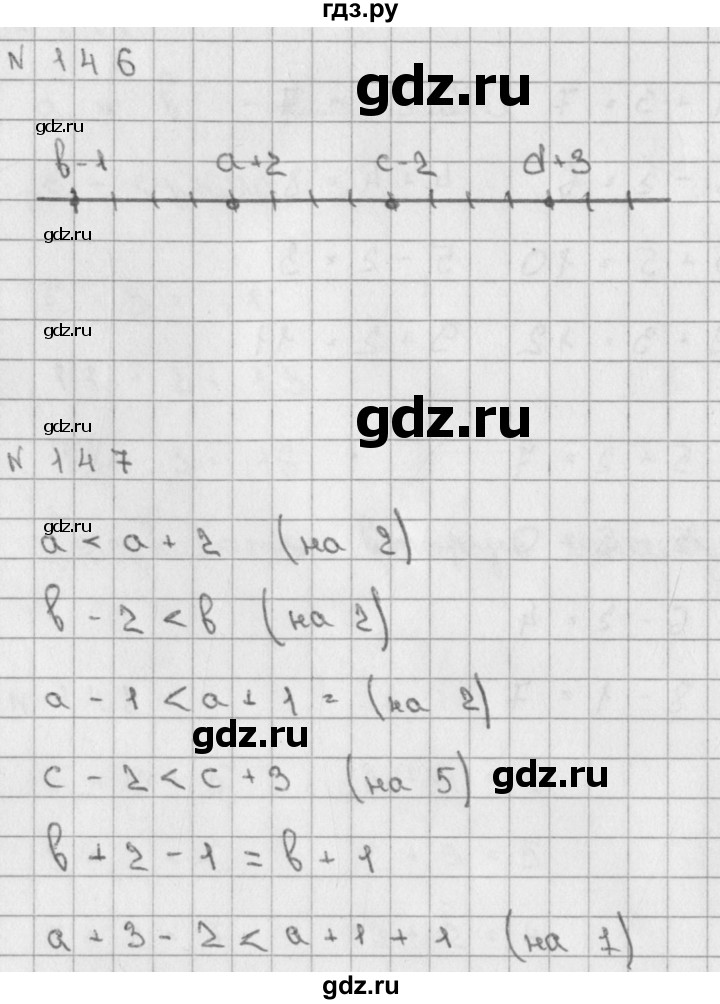 гдз.ру
N 146
gdz.ru
gdz.ru
в-1 a+2 c-2 d+3
gdz.ru
gdz.ru
gdz.ru
gdz.ru
N 147
gdz.ru
a < a + 2 (на 2)
в - 2 < в (на 2)
a - 1 < a + 1 = (на 2)
gdz.ru
c - 2 < c + 3 (на 5)
gdz.ru
в + 2 - 1 = в + 1
a + 3 - 2 < a + 1 + 1 (на 1)
gdz.ru